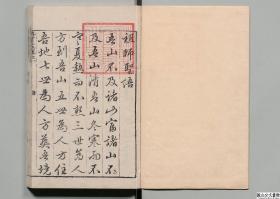 祖師聖語
吾山不及諸山富諸山不
及吾山清吾山冬寒而不
寒夏熱而不熱三世為人
方到吾山五世為人方住
吾地七世為人方葬吾境